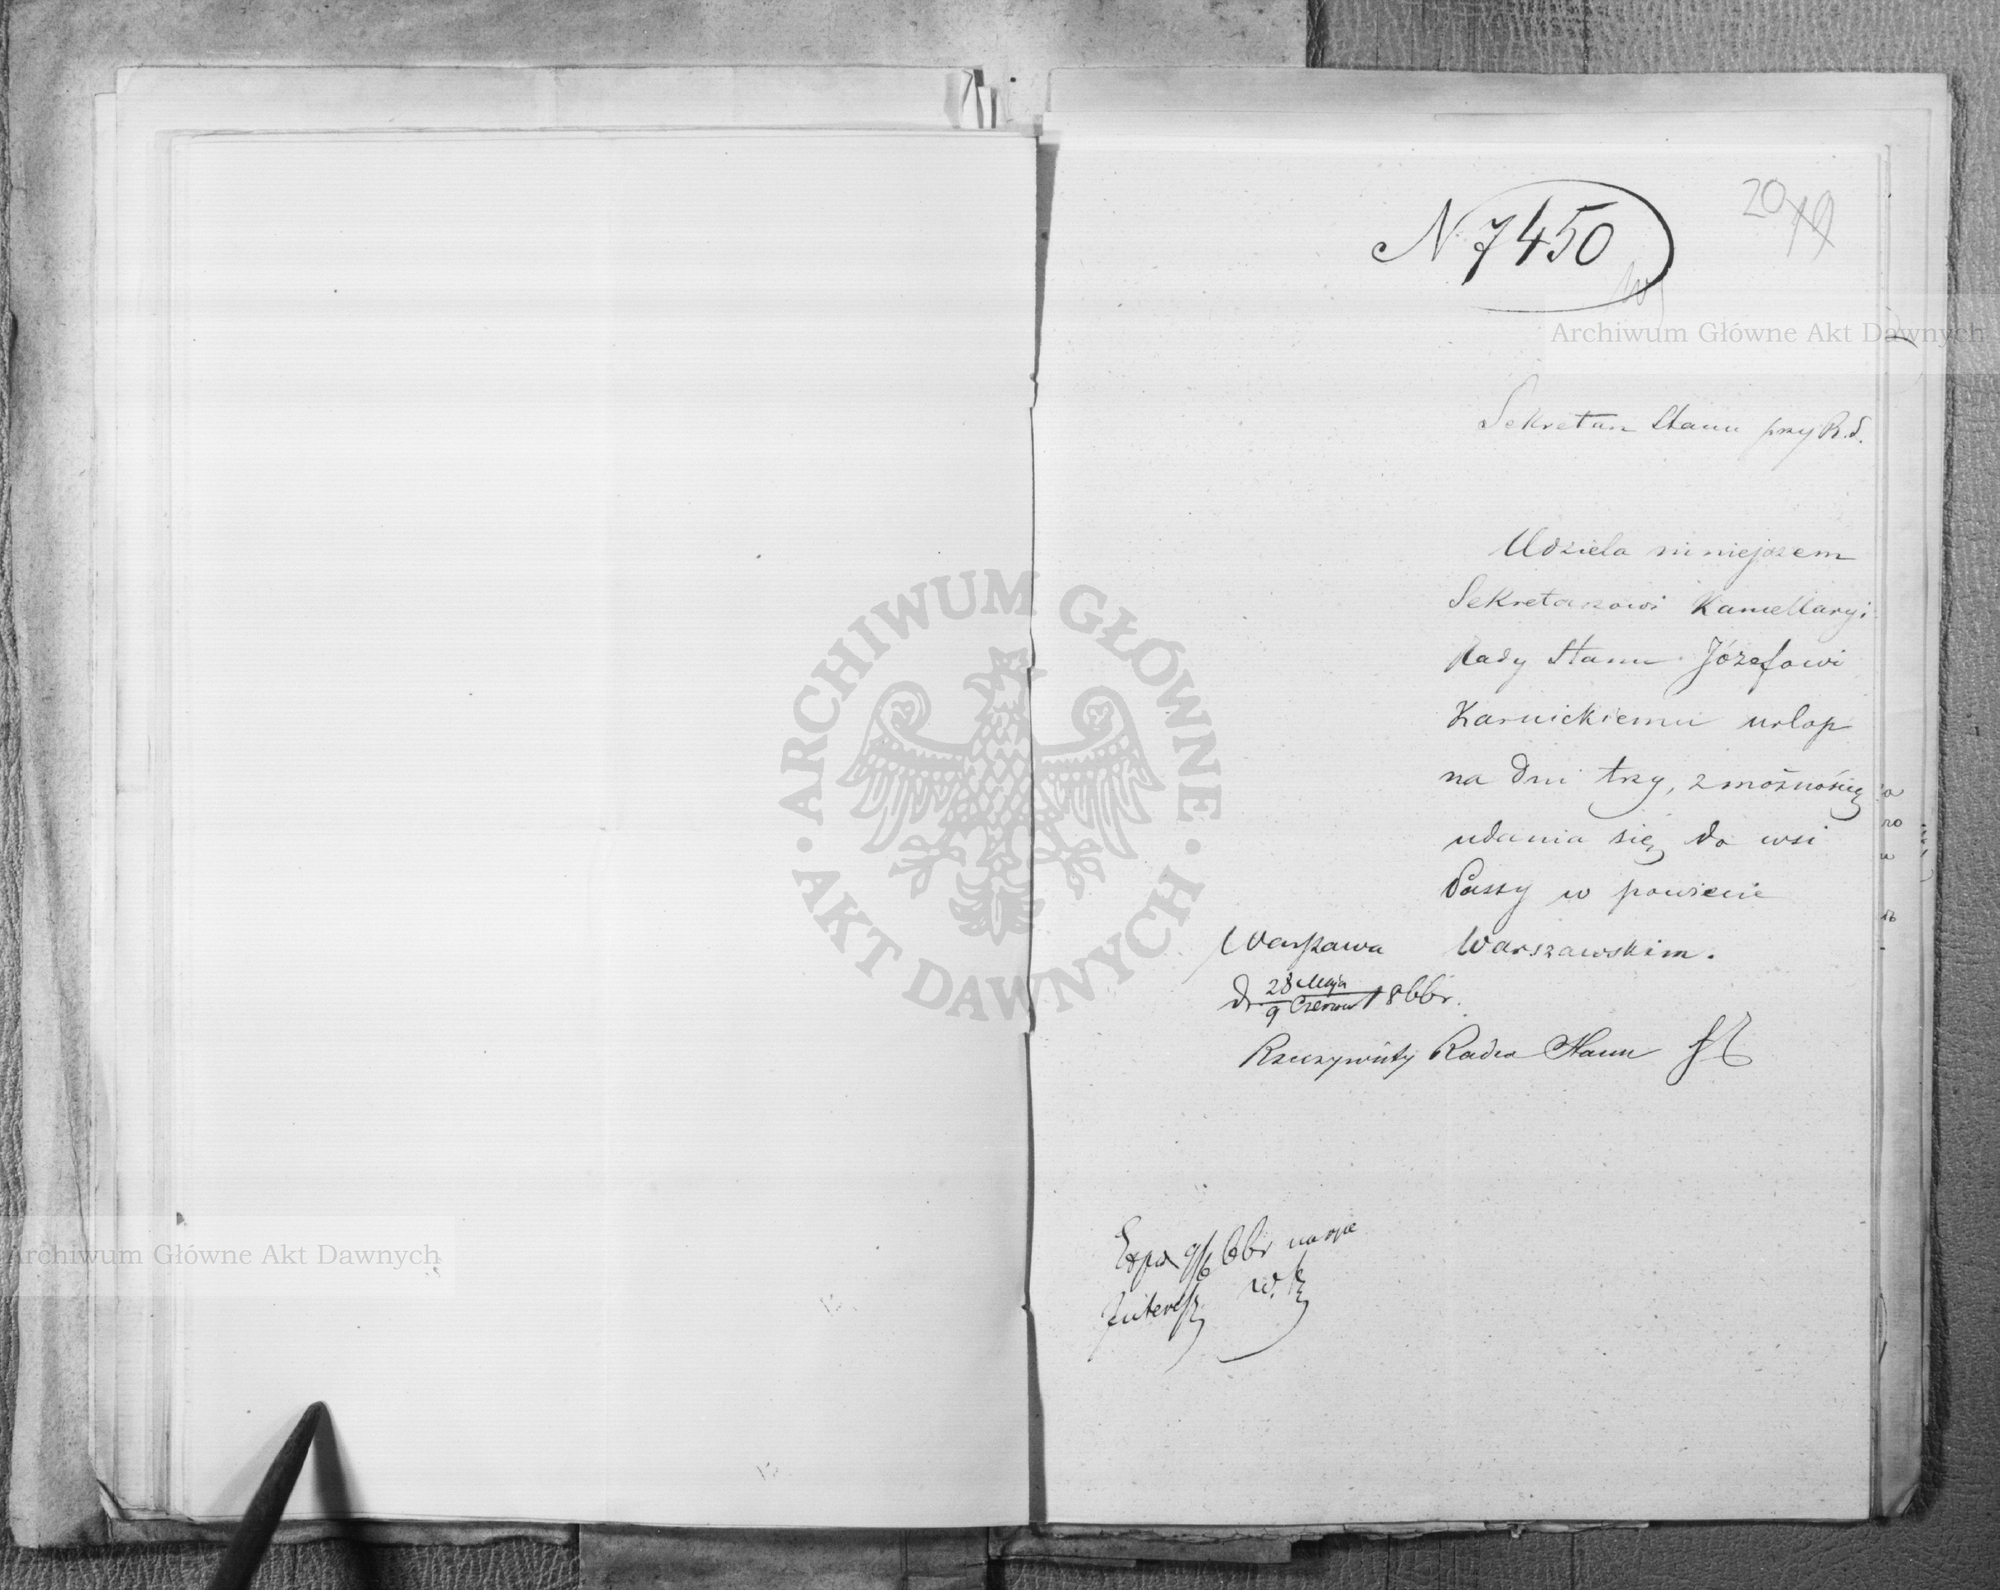 N 7450
20 19
Sekretarz Stanu przy R. S.
Udziela niniejszem
Sekretarzowi Kancellaryi
Rady Stanu Józefowi
Karnickiemu urlop
na dni trzy, z możnością
udania się do wsi
Passy w powiecie
Warszawskim.
Warszawa
d. 28 Maja
9 Czerwca 1866 r.
Rzeczywisty Radca Stanu
Exped 9/6 66 r na ręce
Interess.
Archiwum Główne Akt Dawnych
Archiwum Główne Akt Dawnych
ARCHIWUM GŁÓWNE · AKT DAWNYCH ·